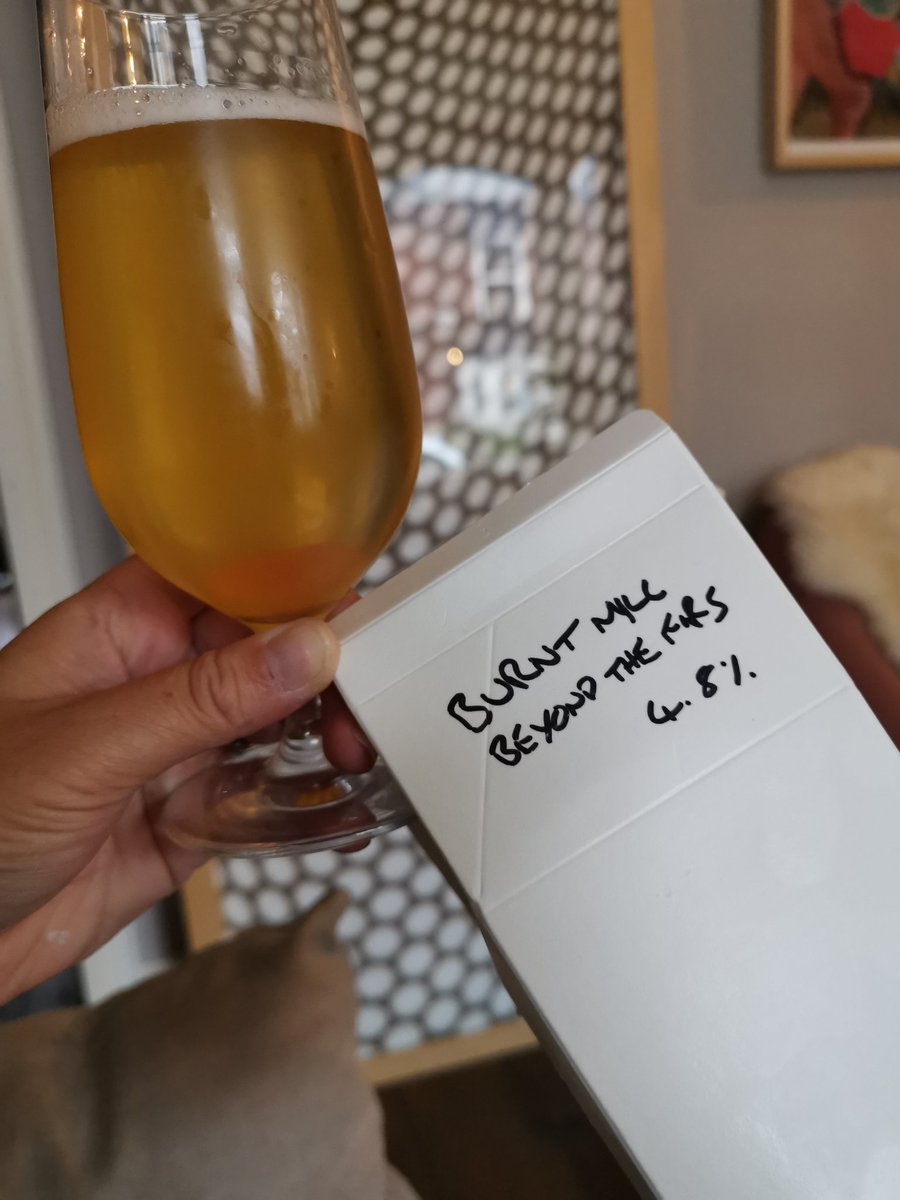 BURNT MILL
BEYOND THE FIRS
4.8%